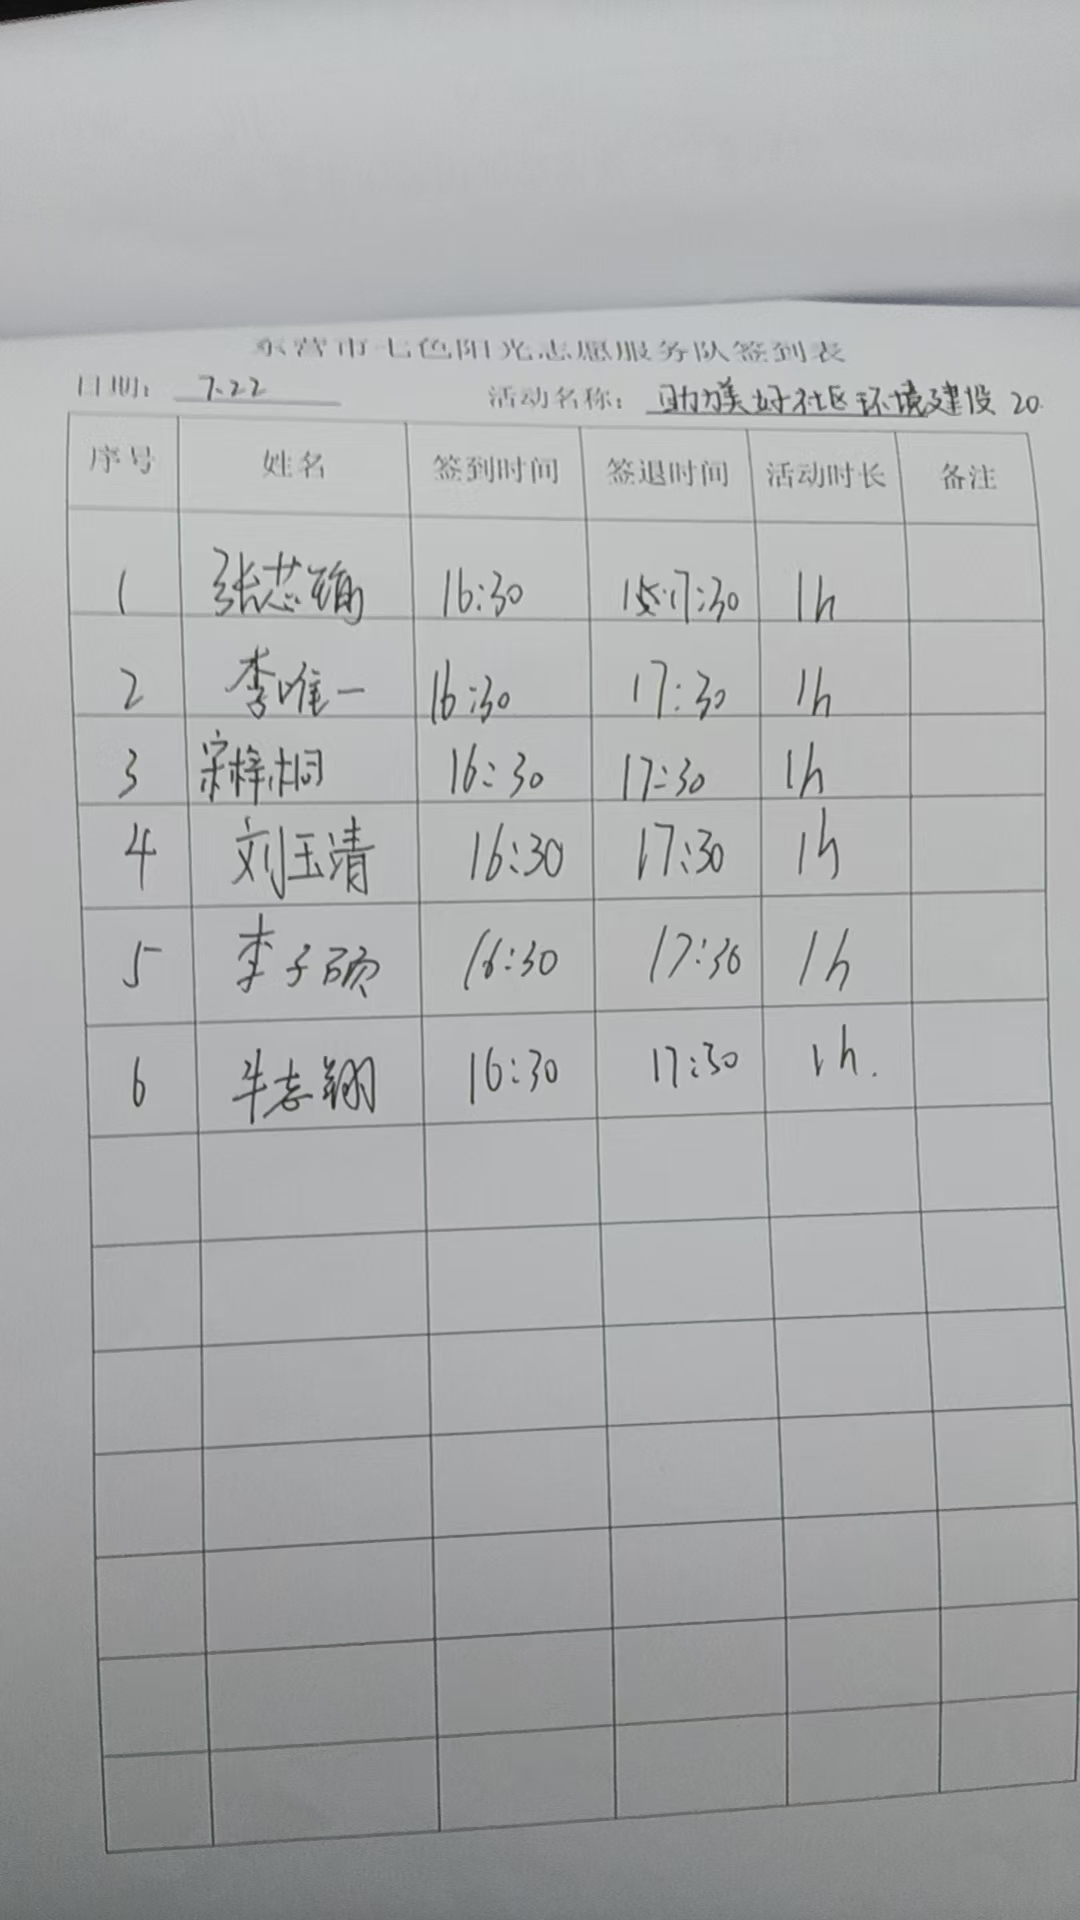 东营市七色阳光志愿服务队签到表
日期： 7.22 活动名称： 助力美好社区环境建设 20.
序号 姓名 签到时间 签退时间 活动时长 备注
1 张芯瑜 16:30 17:30 1h
2 李唯一 16:30 17:30 1h
3 宋梓桐 16:30 17:30 1h
4 刘玉清 16:30 17:30 1h
5 李子硕 16:30 17:30 1h
6 牛志翔 16:30 17:30 1h.